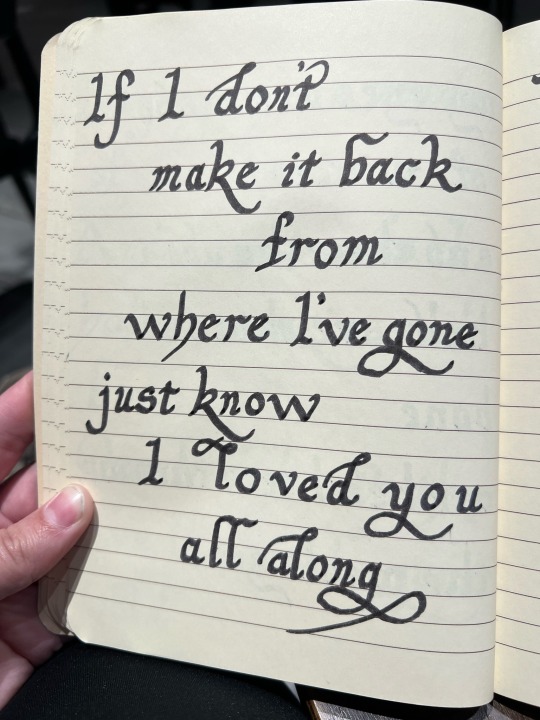 If I don't
make it back
from
where I've gone
just know
I loved you
all along